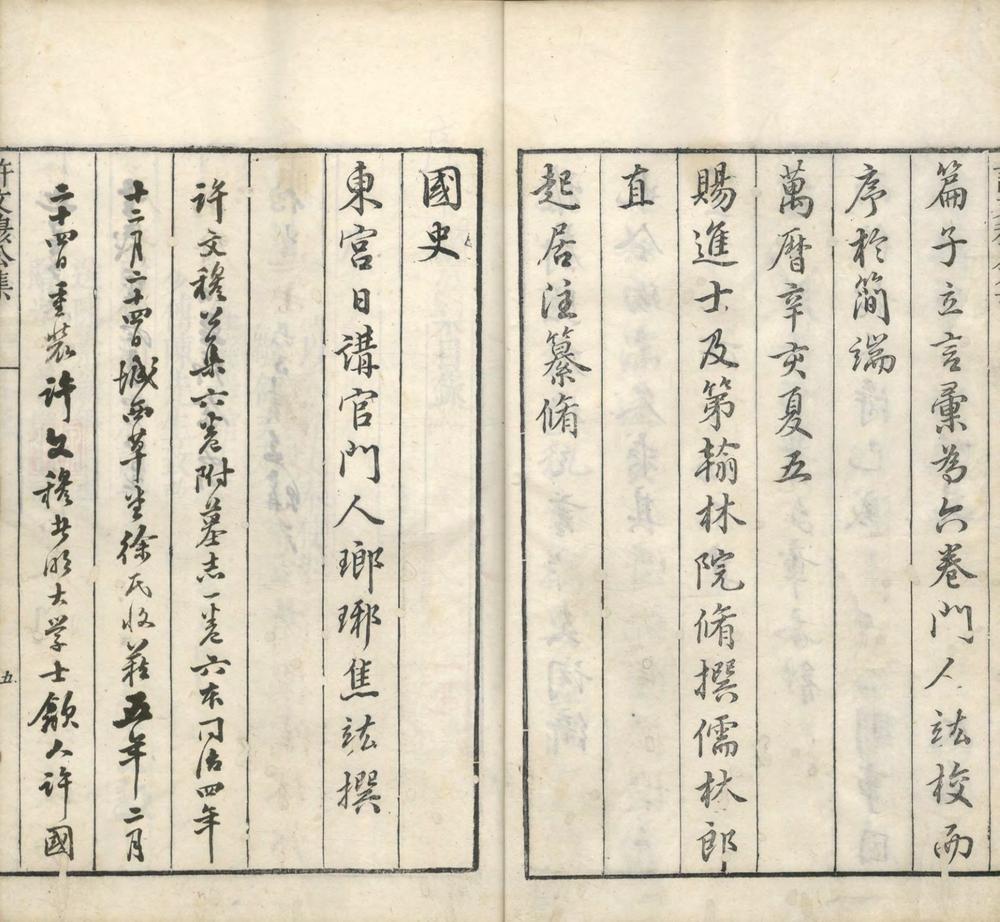 篇子立言彙為六卷門人竑校而
序於簡端
萬曆辛亥夏五
賜進士及第翰林院脩撰儒林郎
直
起居注纂脩
國史
東宮日講官門人瑯琊焦竑撰
許文穆公集六卷附墓志一卷六本同治四年
十二月二十四日城西草堂徐氏收藏五年二月
二十四日重裝許文穆者明大学士歙人許國
許文穆公集
五